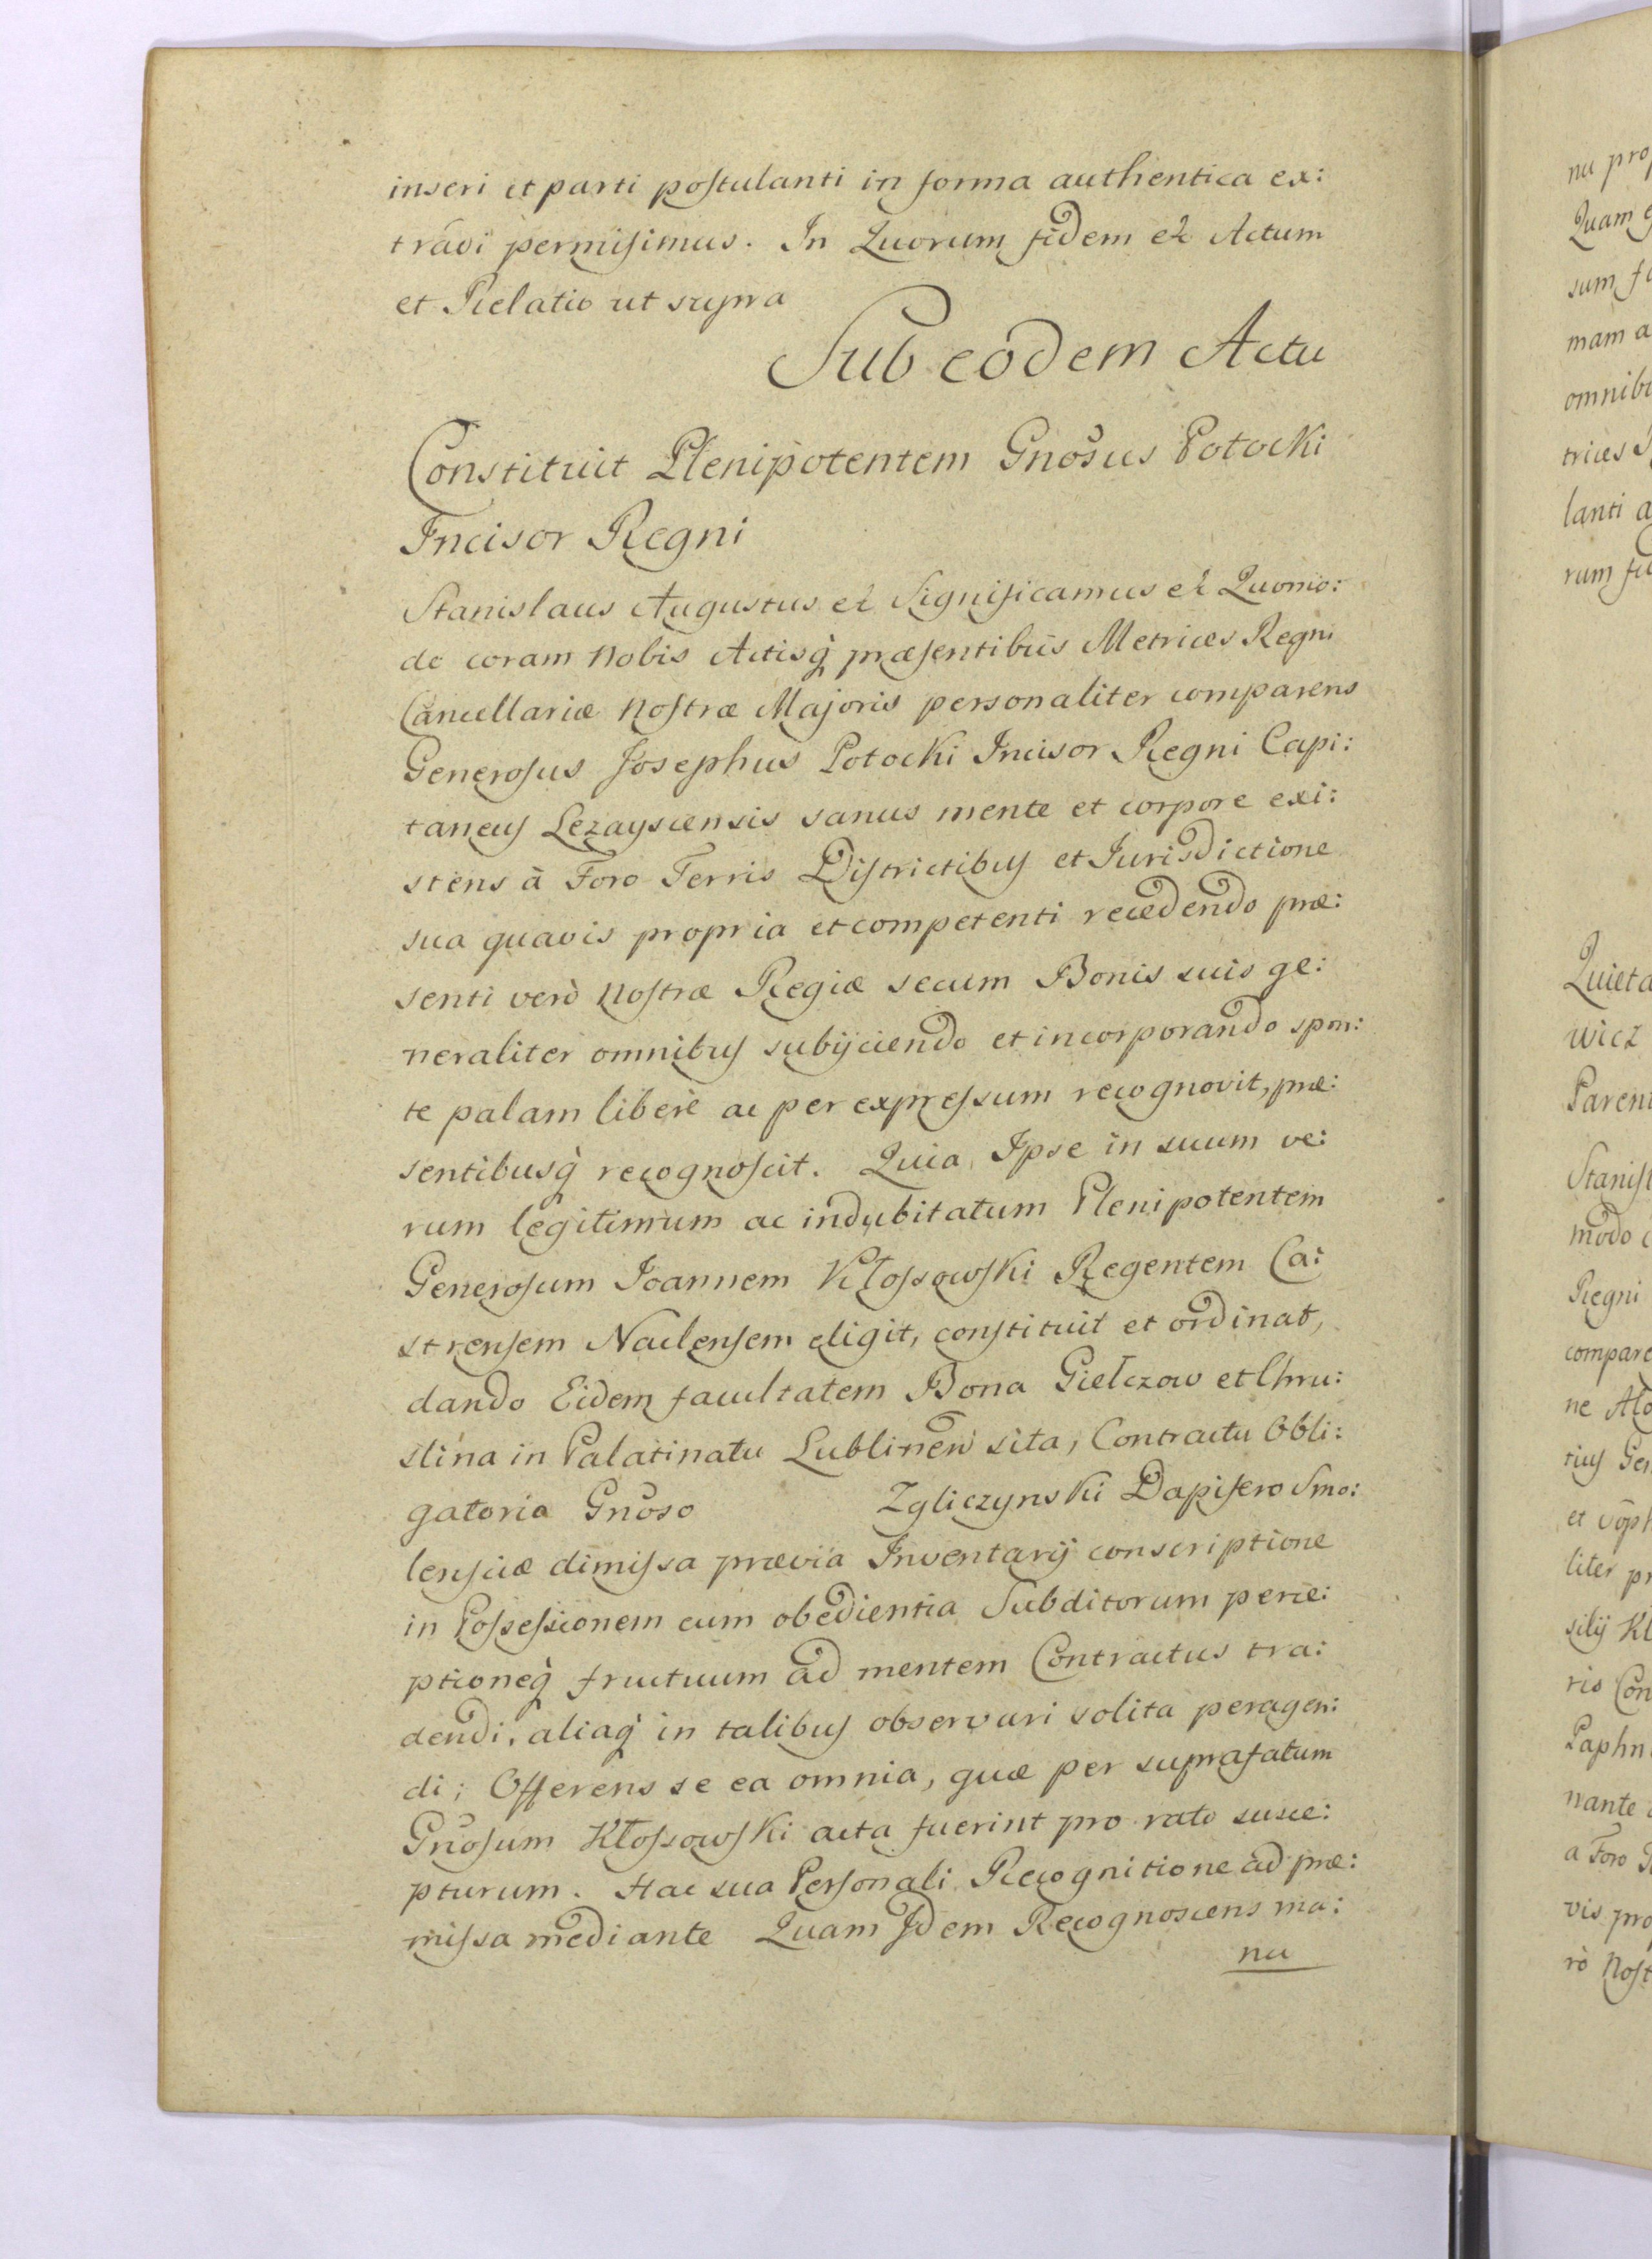 inseri et parti postulanti in forma authentica ex:
tradi permisimus. In Quorum fidem et Actum
et Relatio ut supra
Sub eodem Actu
Constituit Plenipotentem Gnosus Potocki
Incisor Regni
Stanislaus Augustus et Significamus et Quomo:
do coram Nobis Actisq̀ præsentibus Metrices Regni
Cancellariæ Nostræ Majoris personaliter comparens
Generosus Josephus Potocki Incisor Regni Capi:
taneus Lezayscensis sanus mente et corpore exi:
stens à Foro Terris Districtibus et Jurisdictione
sua quavis propria et competenti recedendo præ:
senti verò Nostræ Regiæ secum Bonis suis ge:
neraliter omnibus subijciendo et incorporando spon:
te palam liberè ac per expressum recognovit, præ:
sentibusq̀ recognoscit. Quia Ipse in suum ve:
rum legitimum ac indubitatum Plenipotentem
Generosum Joannem Kłossowski Regentem Ca:
strensem Naclensem eligit, constituit et ordinat,
dando Eidem facultatem Bona Giełczow et Chru:
slina in Palatinatu Lublinen sita, Contractu Obli:
gatorio Gnoso Zgliczynski Dapifero Smo:
lensciæ dimissa prævia Inventarij conscriptione
in Possessionem cum obedientia Subditorum perce:
ptioneq̀ fructuum ad mentem Contractus tra:
dendi, aliaq̀ in talibus observari solita peragen:
di; Offerens se ea omnia, quæ per suprafatum
Gnosum Kłossowski acta fuerint pro rato susce:
pturum. Hac sua Personali Recognitione ad præ:
missa mediante Quam Idem Recognoscens ma:
nu
nu prop
Quam
sum
mam a
omnib
trices
lanti a
rum
Quieta
wicz
Paren
Stanis
modo c
Regni
compare
ne
tius Gen
et
liter pr
silij Kl
rio Con
Paphn
nante
a Foro
vis pro
rò Nost